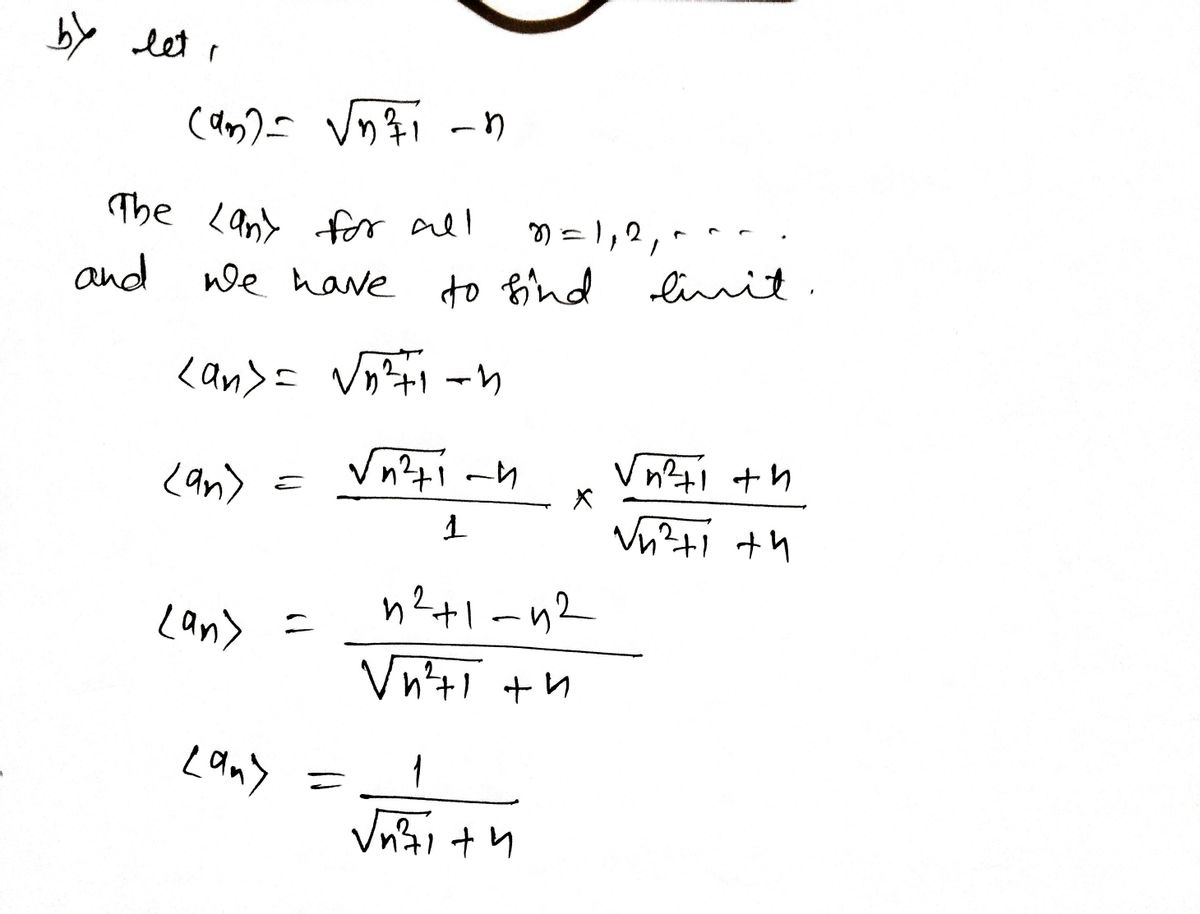 b) let,
(an) = √n²+1 - n
The <an> for all n = 1, 2, - - - .
and we have to find limit.
<an> = √n²+1 - n
<an> = √n²+1 - n / 1 × √n²+1 + n / √n²+1 + n
<an> = n²+1 - n² / √n²+1 + n
<an> = 1 / √n²+1 + n